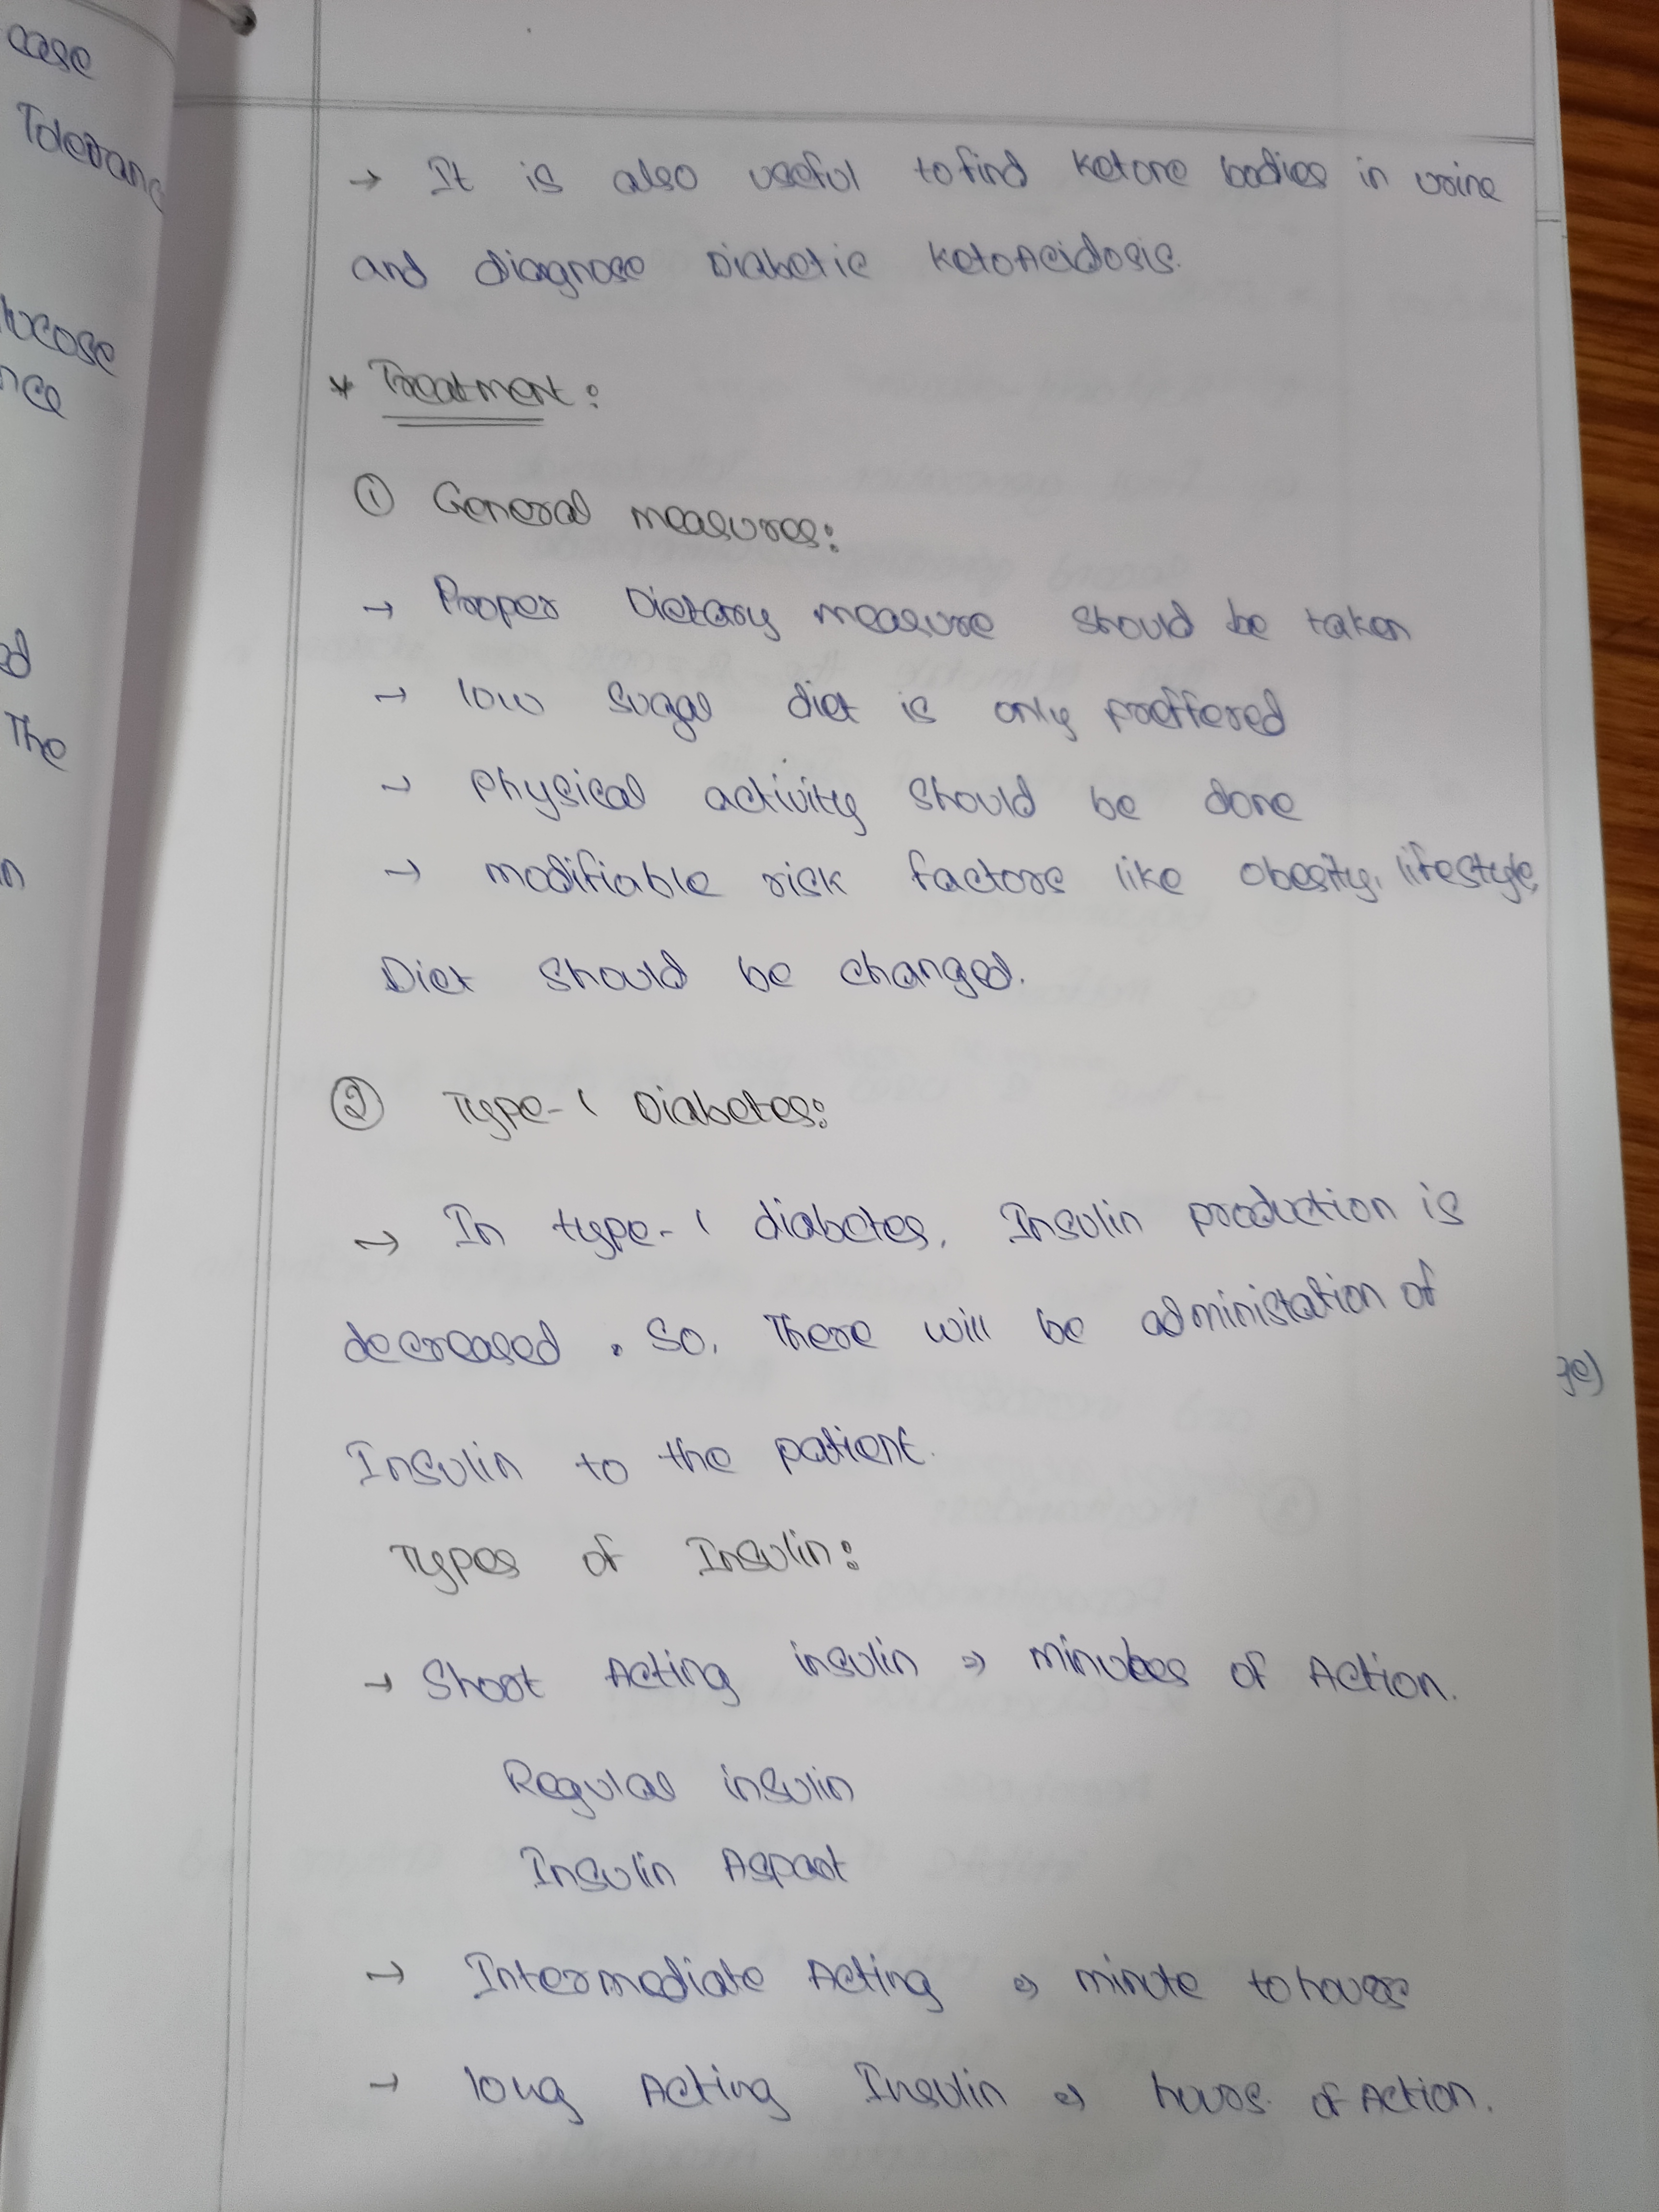 case
Toleranc
lucose
nce
ed
The
n
→ It is also useful to find ketone bodies in urine
and diagnose Diabetic KetoAcidosis.
* Treatment:
① General measures:
→ Proper Dietary measure should be taken
→ low sugar diet is only preffered
→ Physical activity should be done
→ modifiable risk factors like obesity, lifestyle,
Diet should be changed.
② Type-1 Diabetes:
→ In type-1 diabetes, Insulin production is
decreased. So, There will be administation of
Insulin to the patient.
Types of Insulin:
→ Short Acting insulin ⇒ minutes of Action.
Regular insulin
Insulin Aspart
→ Intermediate Acting ⇒ minute to hours
→ long Acting Insulin ⇒ hours of Action.